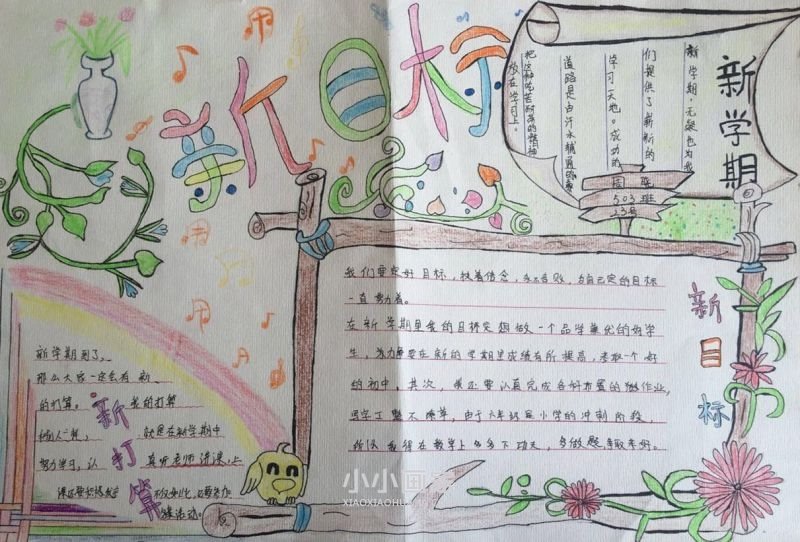 新目标
新学期
新学期,无疑也为我
们提供了崭新的
学习天地。成功的
道路是由汗水铺通的
把这种吃苦耐劳的精神
放在学习上。
503班
23号
我们要定好目标,抉着信念,永不言败,为自己定的目标
一直努力着。
在新学期里我的目标定想做一个品学兼优的好学
生,努力要在新的学期里成绩有所提高,考取一个好
的初中,其次,我还要认真完成各好布置的作业,
写字工整不潦草,由于六年级是小学的冲刺阶段,
所以我得在数学上多多下功夫,多做题,争取考好。
新目标
新学期到了、
那么大家一定会有新
的打算。我的打算
就是在新学期中
努力学习,认真听老师讲课,上
课还要积极发言不仅如此,还要参加
活动。
新打算
小小画
XIAOXIAOHU